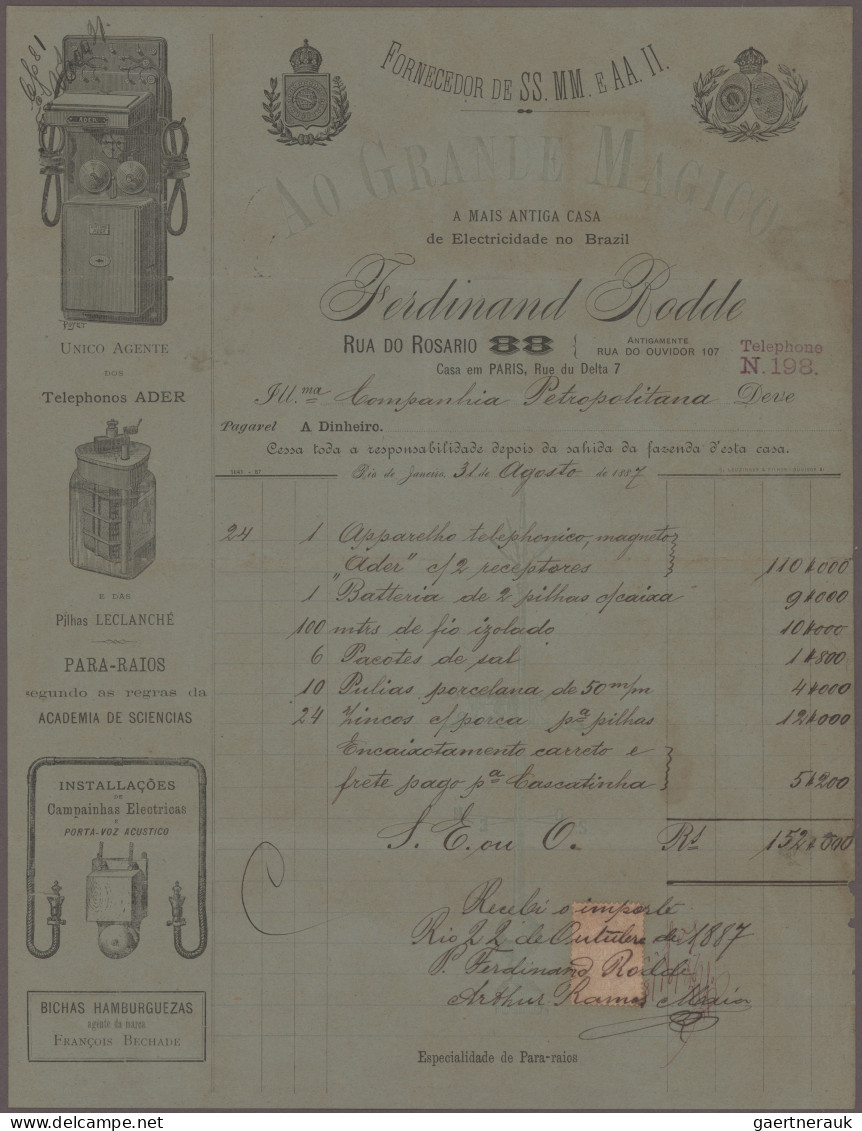 FORNECEDOR DE SS. MM. E AA. II.
AO GRANDE MAGICO
A MAIS ANTIGA CASA
de Electricidade no Brazil
Ferdinand Rodde
RUA DO ROSARIO 88
ANTIGAMENTE
RUA DO OUVIDOR 107
Telephone
N. 198.
Casa em PARIS, Rue du Delta 7
Ill.ma Companhia Petropolitana Deve
Pagavel A Dinheiro.
Cessa toda a responsabilidade depois da sahida da fazenda d'esta casa.
Rio de Janeiro, 31 de Agosto de 1887
24 1 Apparelho telephonico, magneto
"Ader" c/2 receptores 110$000
1 Batteria de 2 pilhas c/caixa 9$000
100 mtrs de fio izolado 10$000
6 Pacotes de sal 1$800
10 Pulias porcelana de 50 m/m 4$000
24 Zincos c/porca pa pilhas 12$000
Encaixotamento carreto e
frete pago pa Cascatinha 5$200
S. E. ou O. Rs 152$000
Recebi o importe
Rio 22 de Outubro de 1887
P. Ferdinand Rodde
Arthur Ramos
Especialidade de Para-raios
ADER
UNICO AGENTE
DOS
Telephonos ADER
E DAS
Pilhas LECLANCHÉ
PARA-RAIOS
segundo as regras da
ACADEMIA DE SCIENCIAS
INSTALLAÇÕES
DE
Campainhas Electricas
E
PORTA-VOZ ACUSTICO
BICHAS HAMBURGUEZAS
agente da marca
FRANÇOIS BECHADE
gaertnerauk